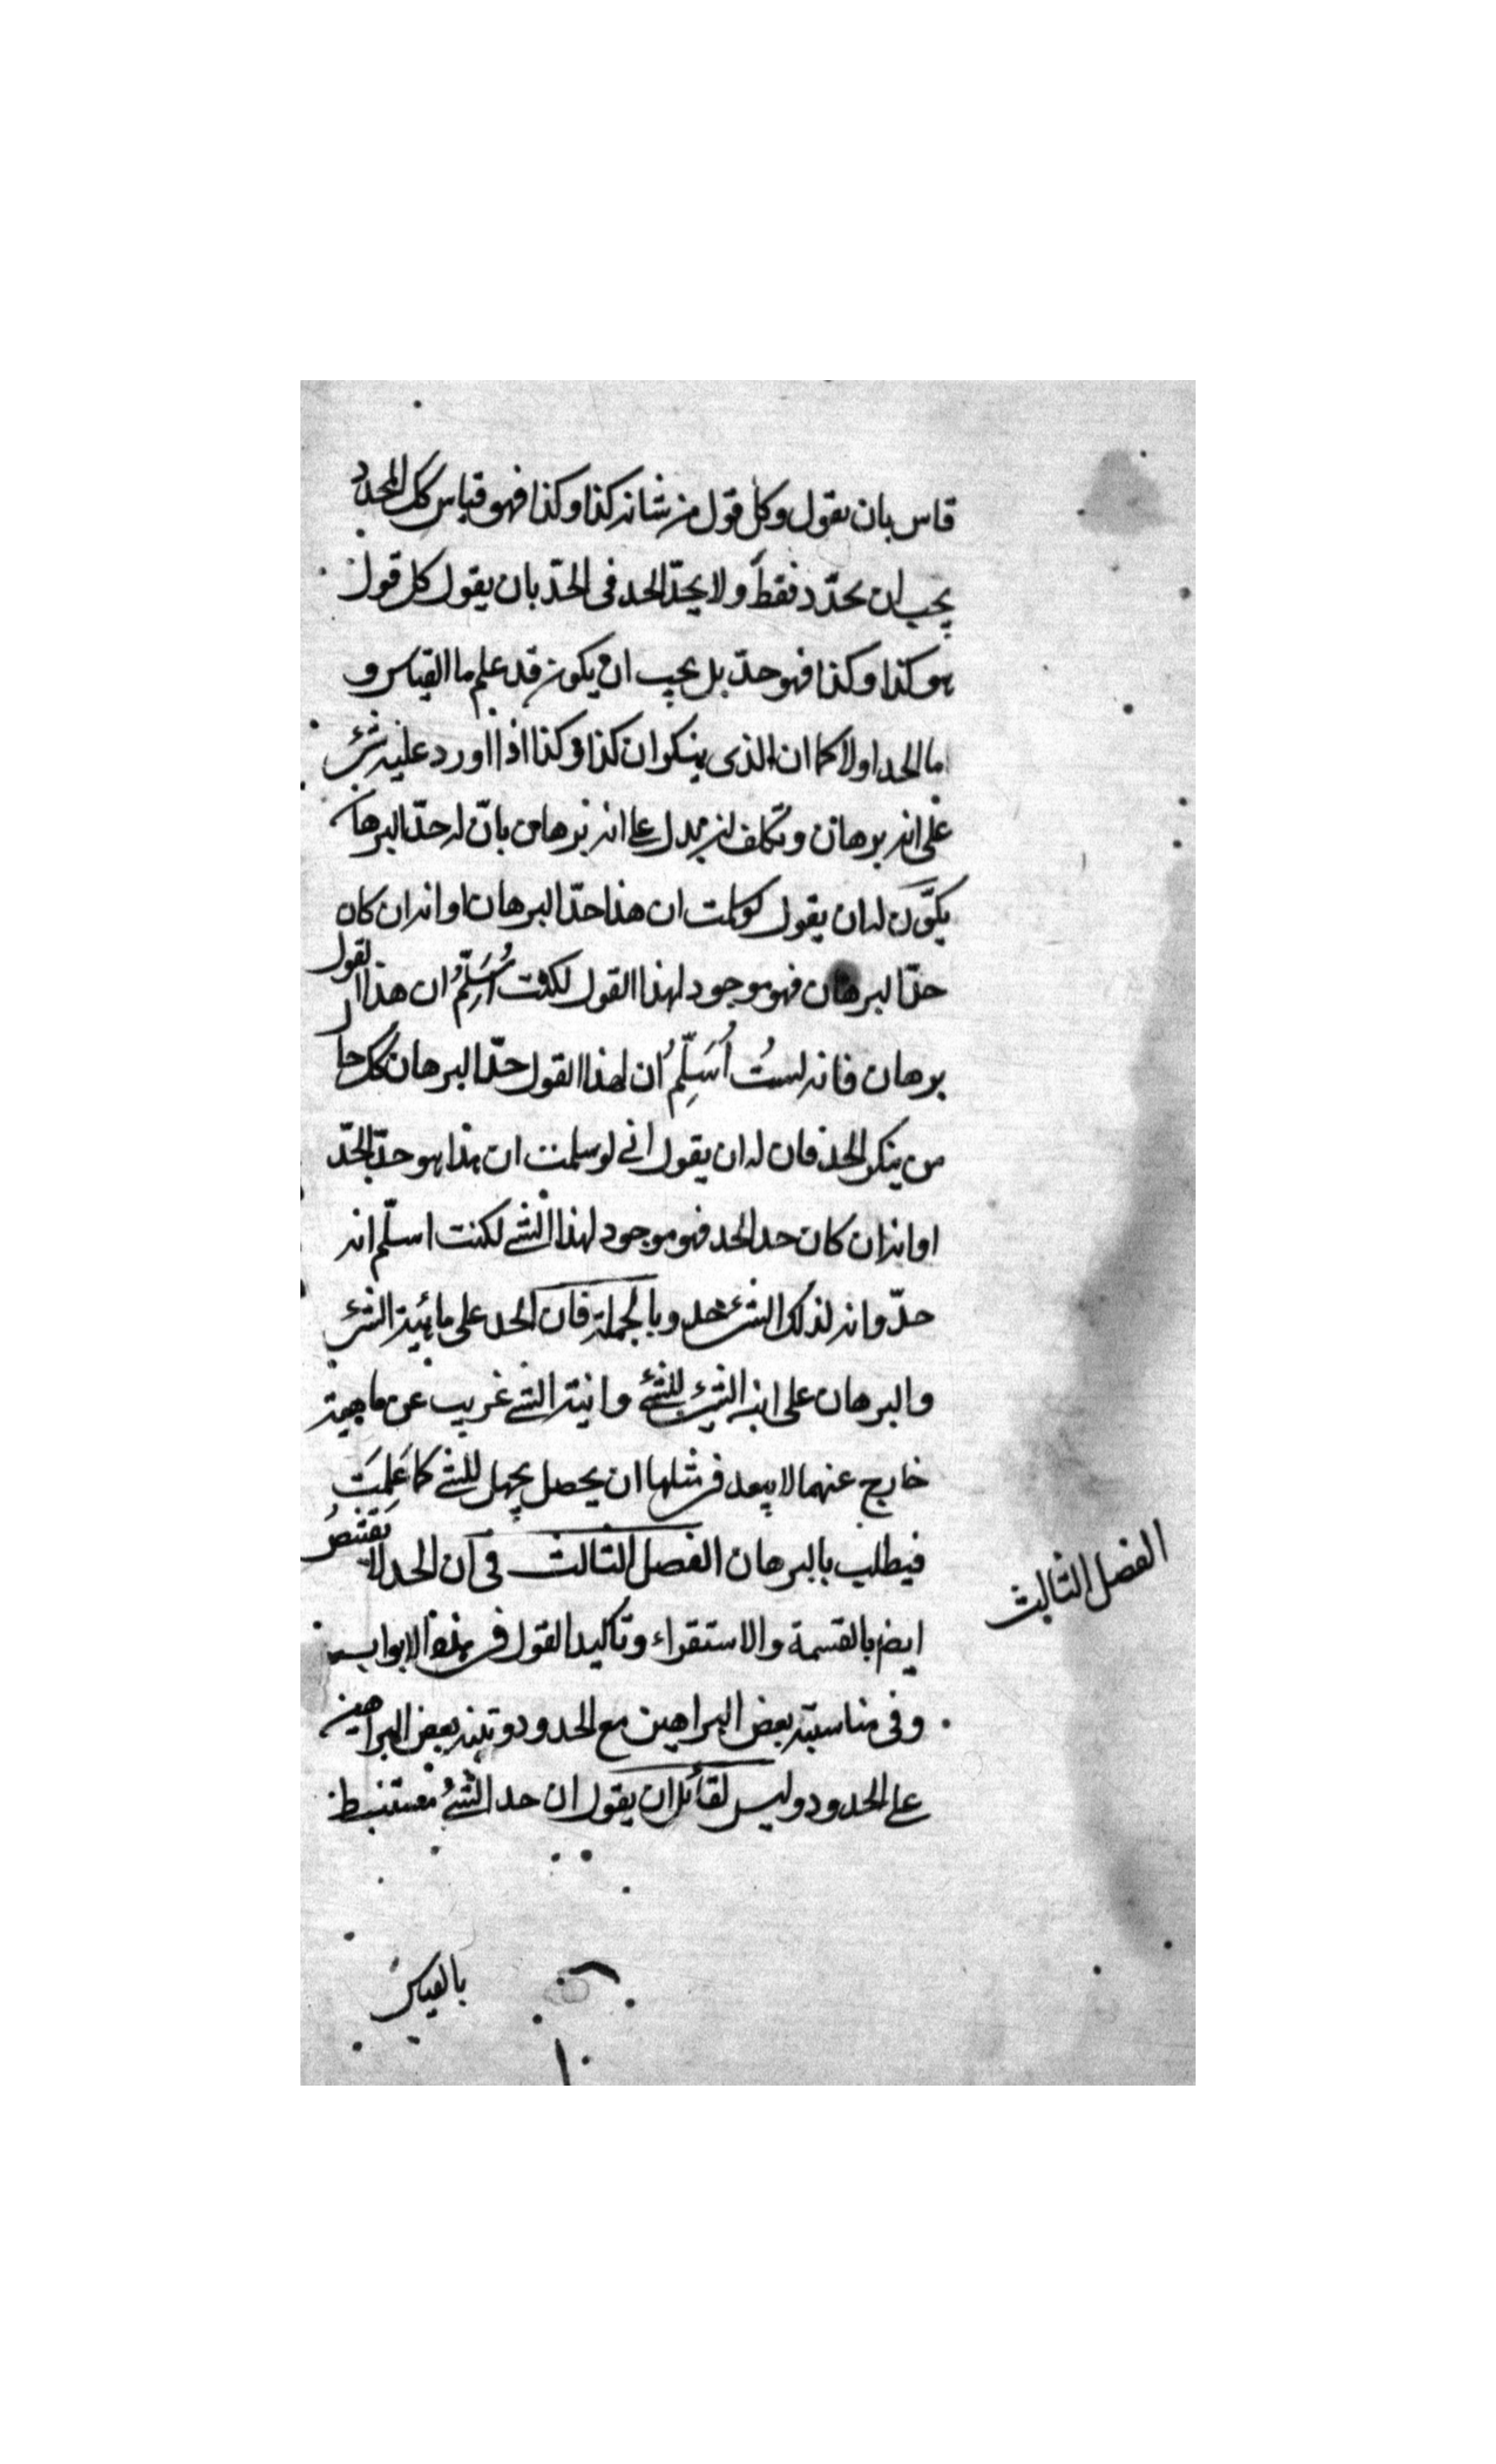 قاس بان يقول وكل قول من شانه كذا وكذا فهو قياس كك المحدد
يجب ان يحدّد فقط ولا يحدّ الحد فى الحدّ بان يقول كل قول
هو كذا وكذا فهو حدّ بل يجب ان يكون قد علم ما القياس و
ما الحد اولا كما ان الذى ينكر ان كذا وكذا اذا اورد عليه شئ
على انه برهان وتكلف ان يدل على انه برهان بانّ له حدّ البرهان
يكون له ان يقول لو سلمت ان هذا حدّ البرهان او انه ان كان
حدّ البرهان فهو موجود لهذا القول لكنت اُسَلِّمُ ان هذا القول
برهان فانه لستُ اُسَلِّمُ ان لهذا القول حدّ البرهان كك حا
من ينكر الحد فان له ان يقول انى لو سلمت ان هذا هو حدّ الحدّ
او انه ان كان حد الحد فهو موجود لهذا الشئ لكنت اسلّم انه
حدّ وانه لذلك الشئ حد وبالجملة فان الحد على مائية الشئ
والبرهان على انية الشئ للشئ وانية الشئ غريب عن ماهيته
خارج عنهما لا يبعد فى مثلها ان يحصل يجهل للشئ كما عَلِمتَ
فيطلب بالبرهان الفصل الثالث فى ان الحد لا يقتنصُ
الفصل الثالث
ايض بالقسمة والاستقراء وتاكيد القول فى هذه الابواب
وفى مناسبة بعض البراهين مع الحدود وتنبيه بعض البراهين
على الحدود وليس لقائل ان يقول ان حد الشئ مستنبط
بالقياس